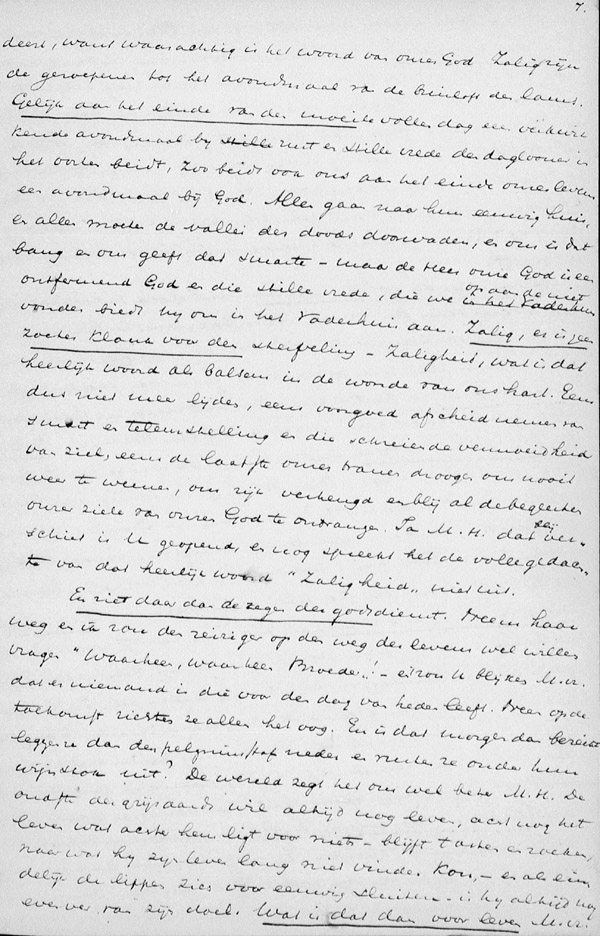 7.
deert, want waarachtig is het woord van onzen God Zalig zijn
de geroepenen tot het avondmaal van de bruiloft des Lams.
Gelijk aan het einde van den moeite vollen dag een verkwik
kende avondmaal by stille rust en stille vrede den daglooner in
het voorten beidt, zoo beidt ook ons aan het einde onzes levens
een avondmaal bij God. Allen gaan naar hun eeuwig huis,
en allen moeten de vallei des doods doorwaden, en ons is dat
bang en ons geeft dat smarte – maar de Heer onze God is een
ontfermend God en die stille vrede, die we op aarde niet in het Vaderhuis
vonden biedt hy ons in het Vaderhuis aan. Zalig, er is geen
zachter klank voor den sterveling – Zaligheid, wat is dat
heerlijk woord als balsem in de wonde van ons hart. Eens
dus niet meer lijden, eens voorgoed afscheid nemen van
smart en teleurstelling en die schreiende vermoeidheid
van ziel, eens de laatste onzer tranen drogen om nooit
weer te weenen, om rijk verheugd en blij al de begeerten
onzer ziele van onzen God te ontvangen. Ja M.H. dat zij ver-
schiet is U geopend, en nog spreekt het de volle gedach
te van dat heerlijk woord "Zaligheid" niet uit.
En ziet daar dan de zegen der godsdienst. Neem haar
weg en ik zou den reiziger op den weg des levens wel willen
vragen "Waarheen, waarheen Broeder!" – en 't zou U blijken M.H.
dat er niemand is die voor den dag van heden leeft. Neen op de
toekomst richten ze allen het oog. En is dat morgen dan bereikt
leggen ze dan den pelgrimsstaf neder en rusten ze onder hun
wijnstok uit? De wereld zegt het ons wel beter M.H. De
oudste der grijsaards wil altijd nog leven, acht nog het
leven wat achter hem ligt voor niets – blijft tasten en zoeken,
naar wat hy zijn leven lang niet vinden kon, – en als ein
delijk de lippen zich voor eeuwig sluiten – is hy altijd nog
even ver van zijn doel. Wat is dat dan voor leven M.H.